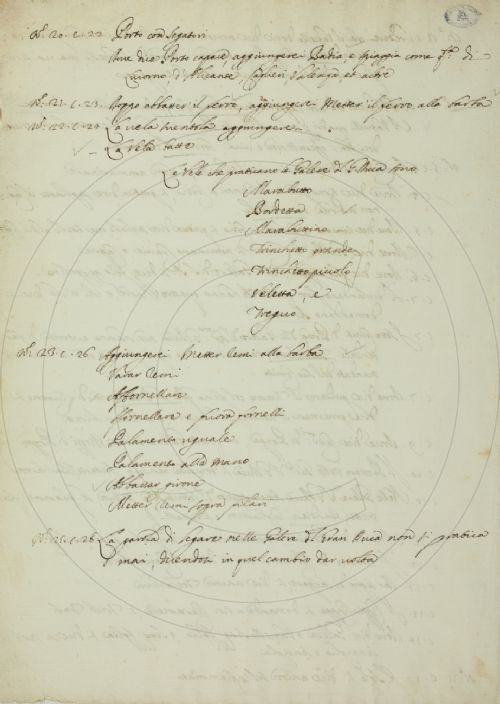 N.° 20. c. 22. Porto con Segatori
Ove dice Porto capace aggiungerei Badia, e spiaggia come q.ta di
Livorno d'Alicante, Caglieri Valenza, et altre
N.° 21. c. 23. Doppo abbatter il ferro, aggiungere Metter il ferro alla barba
N.° 22. c. 24. La vela mentola aggiungere
La Vela batte
Le Vele che praticano le Galere di sono
Marabutto
Bordetta
Marabuttino
Trinchetto grande
Trinchetto piccolo
Veletta, e
Treguo
N.° 23. c. 26. Aggiungerei Metter remi alla barba
Varar remi
Affornellare
Sfornellare e fuora fornelli
Palamento uguale
Palamento alla mano
Abbattar girone
Metter remi sopra pilari
N.° 25. c. 26. La parola di segare nelle Galere del Gran Duca non si pratica
mai, dicendosi in quel cambio dar volta